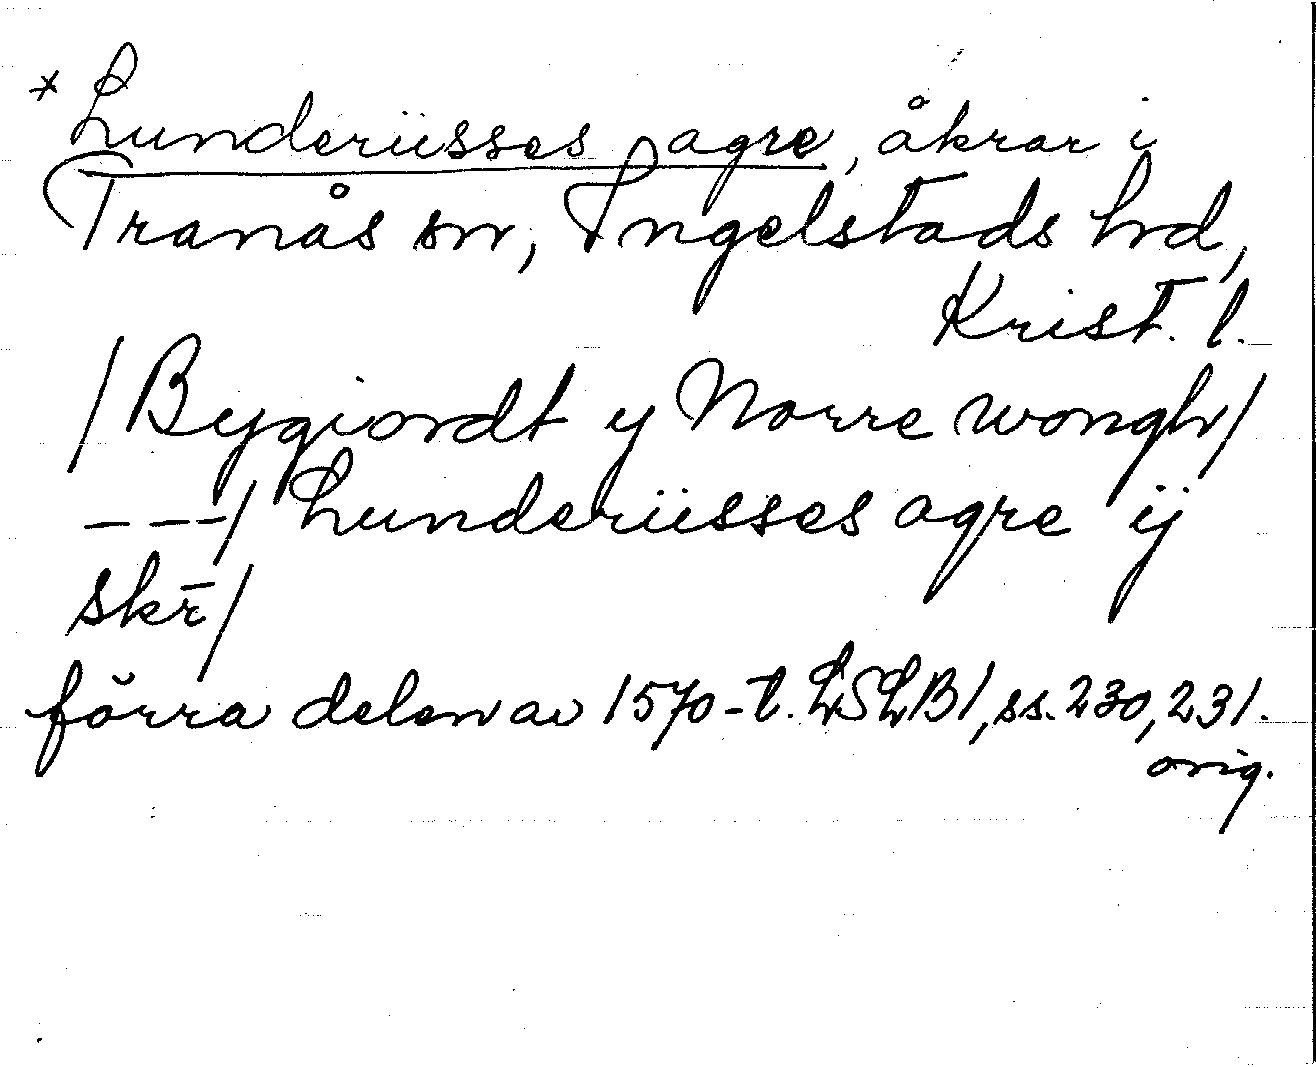 * Lunderüsses agre, åkrar i
Tranås sn, Ingelstads hrd,
Krist. l.
/Bygiordt y Norre wongh/
---/ Lunderüsses agre ÿ
skr̄/
förra delen av 1570-t. LSLB1, ss. 230, 231.
orig.